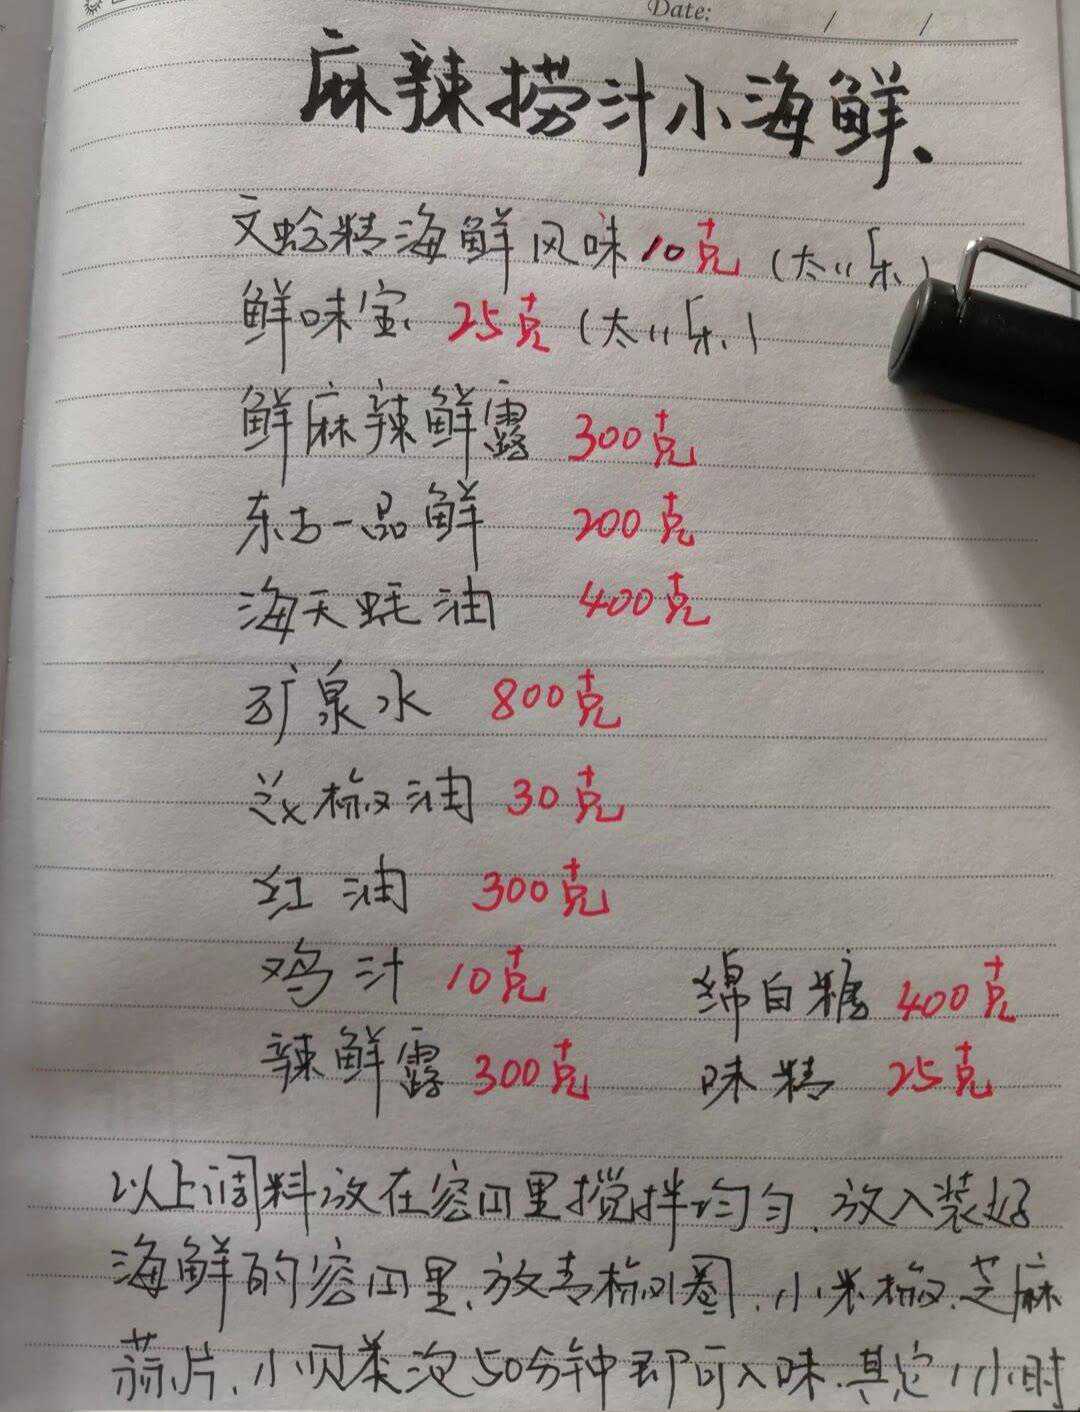 Date: / /
麻辣捞汁小海鲜、
文蛤精海鲜风味10克(太川乐)
鲜味宝 25克(太川乐)
鲜麻辣鲜露 300克
东古一品鲜 200克
海天蚝油 400克
矿泉水 800克
花椒油 30克
红油 300克
鸡汁 10克 绵白糖 400克
辣鲜露 300克 味精 25克
以上调料放在容皿里搅拌均匀.放入装好
海鲜的容皿里.放青椒圈.小米椒.芝麻
蒜片.小贝类泡50分钟即可入味.其它1小时